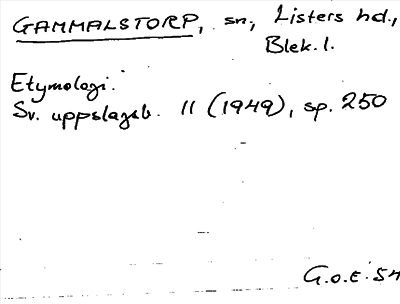 GAMMALSTORP, sn, Listers hd.,
Blek. l.
Etymologi.
Sv. uppslagsb. 11 (1949), sp. 250
G.o.E. 54